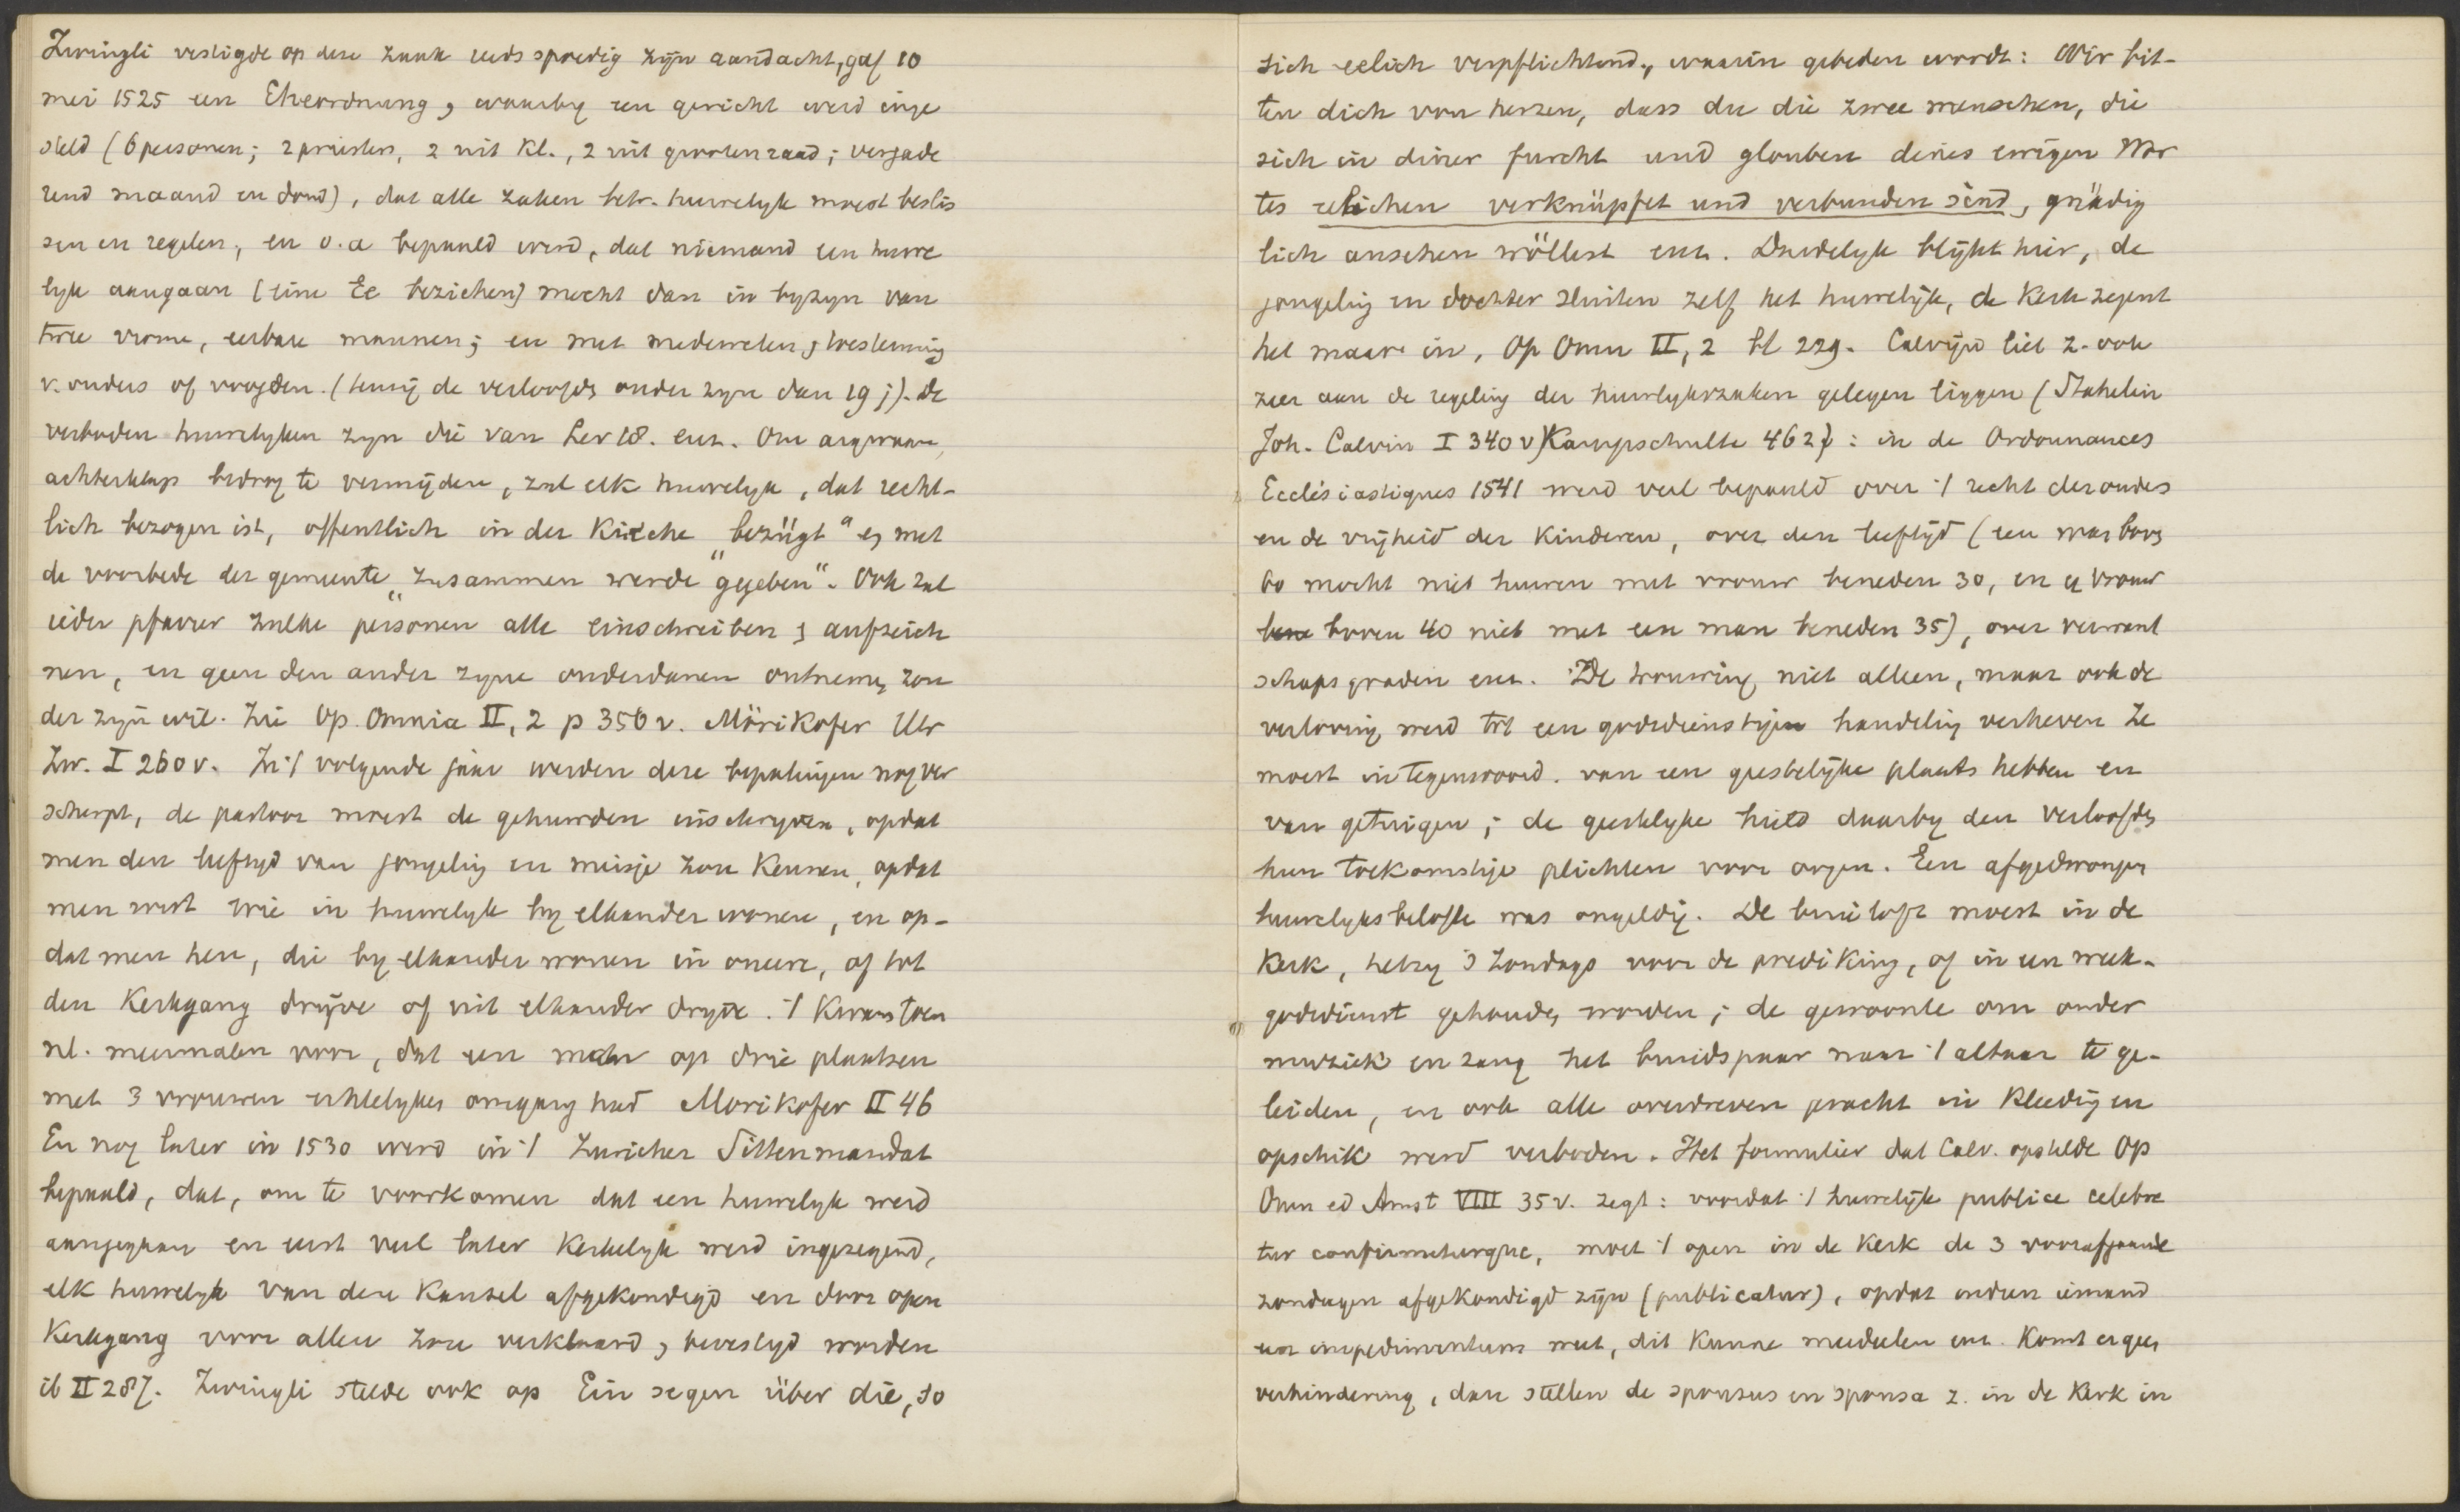 Zwingli vestigde op deze zaak reeds spoedig zijn aandacht, gaf 10
mei 1525 een Eheordnung, waarby een gericht werd inge
steld (6 personen; 2 priesters, 2 uit Kl., 2 uit grooten raad; vergade
rend maand en dond), dat alle zaken betr. huwelyk moest beslis
sen en regelen, en o.a bepaald werd, dat niemand een huwe
lyk aangaan (eine Ee beziehen) mocht dan in byzyn van
twee vrome, eerbare mannen; en met medeweten, toestemming
v. ouders of voogden. (tenzij de verloofds ouder zyn dan 19 j). De
verboden huwelyken zyn die van Lev 18. enz. Om argwaan,
achterklap bedrog te vermijden, zal elk huwelyk, dat recht-
lich bezogen ist, offentlich in der Kirche „bezügt“ en met
de voorbede der gemeente „zusammen werde gegeben“. Ook zal
ieder pfarrer zulke personen alle einschreiben, aufzeich
nen, en geen den ander zyne onderdanen ontnemen zon
der zyn wil. Zie Op. Omnia II, 2 p 356 v. Mörikofer Ulr
Zw. I 260 v. In 't volgende jaar werden deze bepalingen nog ver
scherpt, de pastoor moest de gehuwden inschryven, opdat
men den leeftyd van jongeling en meisje zou kennen, opdat
men wist wie in huwelyk by elkander wonen, en op-
dat men hen, die by elkander wonen in oneere, of tot
den Kerkgang dryve of uit elkander dryve. 't Kwam toen
nl. meermalen voor, dat een man op drie plaatsen
met 3 vrouwen echtelyken omgang had Morikofer II 46
En nog later in 1530 werd in 't Zuricher Sittenmandat
bepaald, dat, om te voorkomen dat een huwelyk werd
aangegaan en eerst veel later Kerkelyk werd ingezegend,
elk huwelyk van den Kansel afgekondigd en door open
Kerkgang voor allen zou verklaard, bevestigd worden
ib II 287. Zwingli stelde ook op Ein segen über die, so
sich eelich verpflichtend, waarin gebeden wordt: Wir bit-
ten dich von herzen, dass du die zwee menschen, die
sich in diner furcht und glouben dines ewigen Wor
tes eelichen verknüpfet und verbunden sind, gnädig
lich ansehen wöllest enz. Duidelyk blijkt hier, de
jongeling en dochter sluiten zelf het huwelijk, de Kerk zegent
het maar in, Op Omn II, 2 bl 229. Calvijn liet z. ook
zeer aan de regeling der huwlykszaken gelegen liggen (Stahelin
Joh. Calvin I 340 v) Kampschulte 462): in de Ordonnances
Ecclésiastiques 1541 werd veel bepaald over 't recht der ouders
en de vrijheid der Kinderen, over den leeftijd (een man boven
60 mocht niet huwen met vrouw beneden 30, en een vrouw
boven 40 niet met een man beneden 35), over verwant
schapsgraden enz. De trouwing niet alleen, maar ook de
verloving werd tot een godsdienstige handeling verheven Ze
moest in tegenwoord. van een geestelijke plaats hebben en
van getuigen; de geestelyke hield daarby den verloofden
hun toekomstige plichten voor oogen. Een afgedwongen
huwelyksbelofte was ongeldig. De bruiloft moest in de
Kerk, hetzy 's Zondags voor de prediking, of in een week-
godsdienst gehouden worden; de gewoonte om onder
muziek en zang het bruidspaar naar 't altaar te ge-
leiden, en ook alle overdreven pracht in Kleeding en
opschik werd verboden. Het formulier dat Calv. opstelde Op
Omn ed Amst VIII 35 v. zegt: voordat 't huwelijk publice celebre
tur confirmeturque, moet 't open in de Kerk de 3 voorafgaande
zondagen afgekondigd zijn (publicatur), opdat indien iemand
een impedimentum weet, dit kunne meedeelen enz. Komt er geen
verhindering, dan stellen de sponsus en sponsa z. in de Kerk in